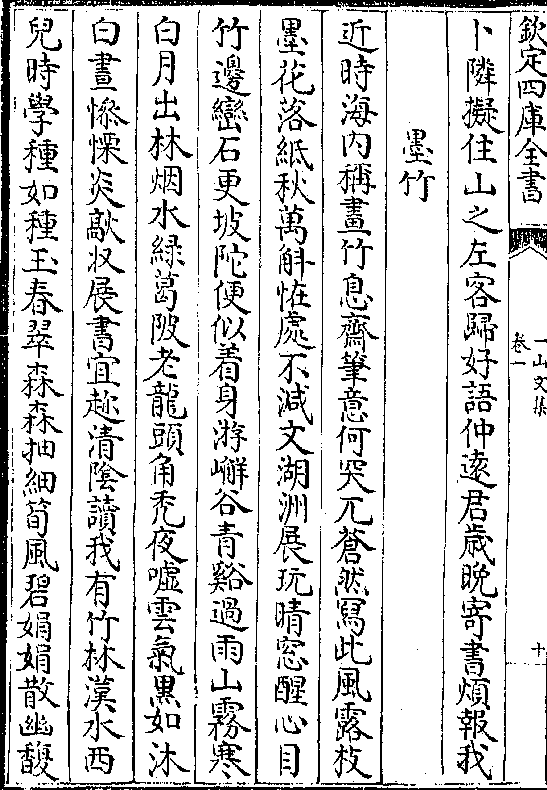 欽定四庫全書
一山文集
卷一
十
卜隣擬住山之左客歸好語仲遠君歲晚寄書煩報我
墨竹
近時海内稱畫竹息齋筆意何突兀蒼然冩此風露枝
墨花落紙秋萬斛恠處不減文湖洲展玩晴窓醒心目
竹邊巒石更坡陀便似着身游嶰谷青谿過雨山霧寒
白月出林烟水綠葛陂老龍頭角秃夜嘘雲氣黒如沐
白晝憯慄炎歊收展書宜趂清陰讀我有竹林漢水西
兒時學種如種玉春翠森森抽細筍風碧娟娟散幽馥